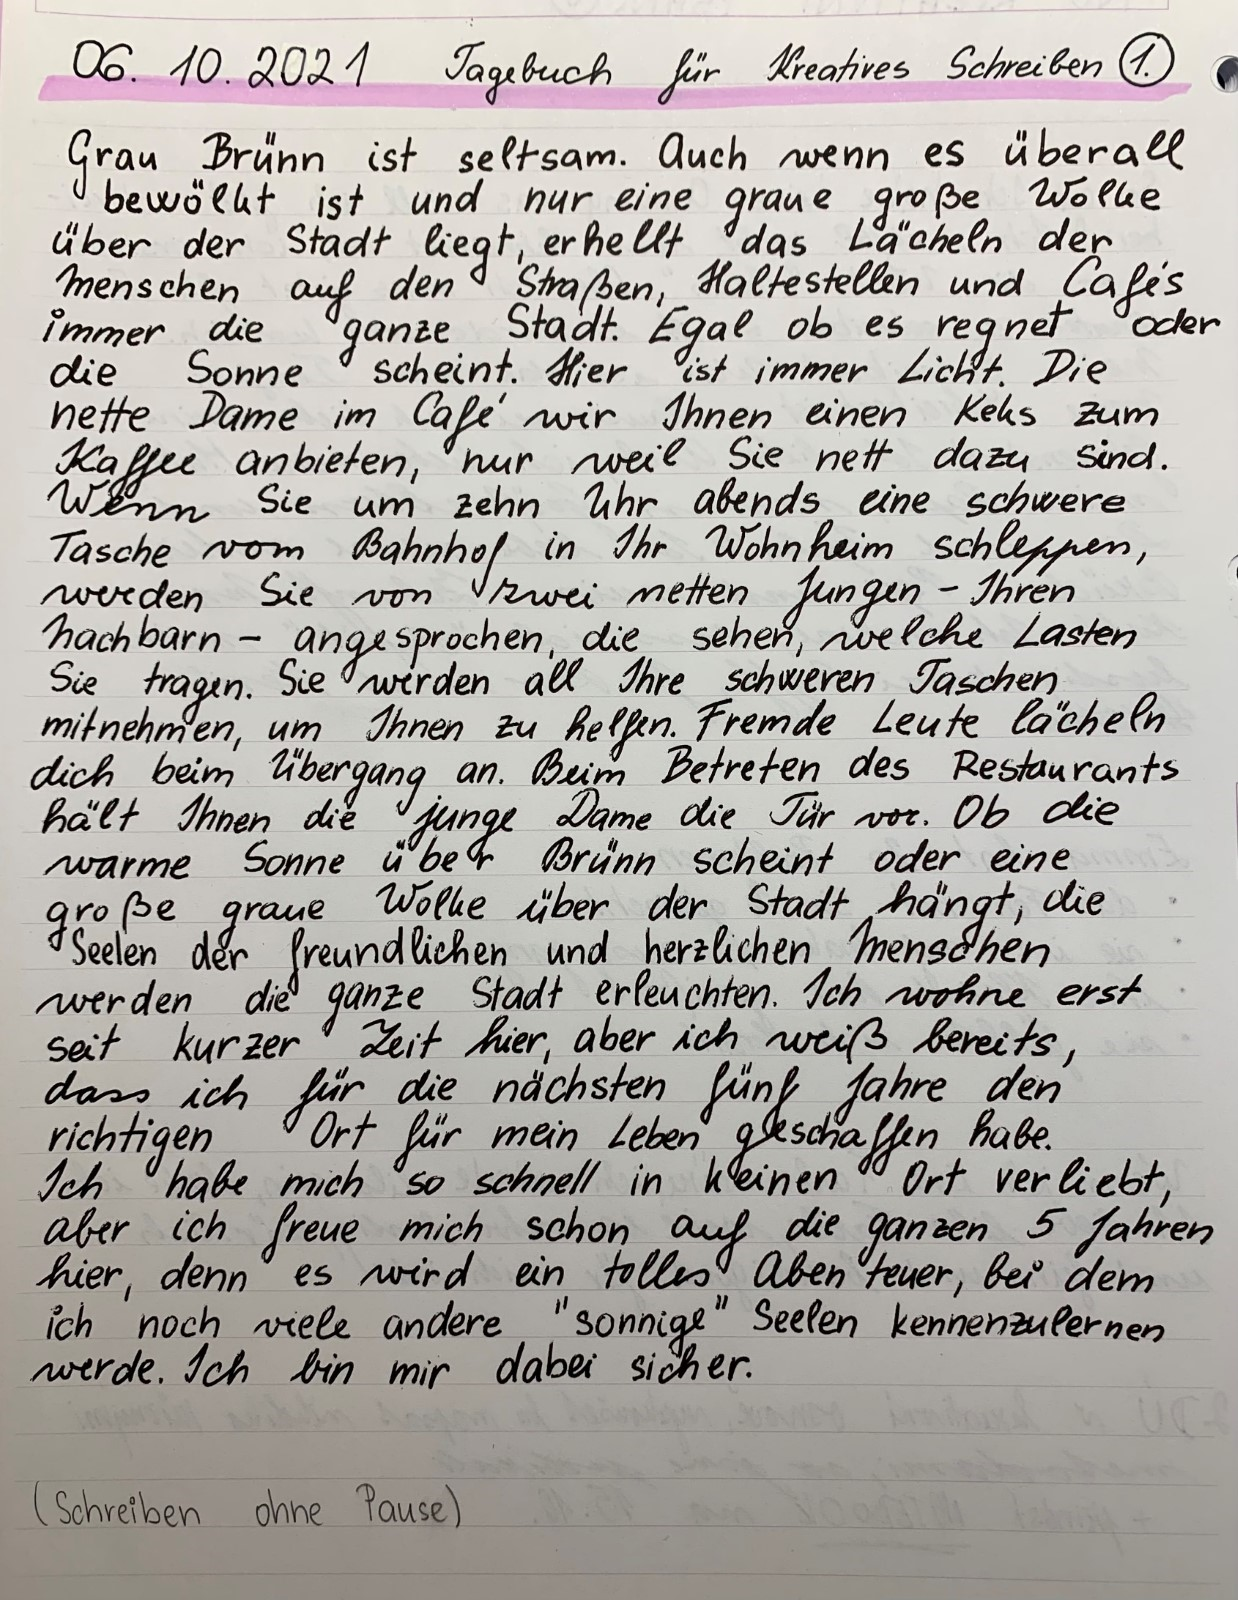 06. 10. 2021 Tagebuch für Kreatives Schreiben 1.
Grau Brünn ist seltsam. Auch wenn es überall
bewölkt ist und nur eine graue große Wolke
über der Stadt liegt, erhellt das Lächeln der
Menschen auf den Straßen, Haltestellen und Cafés
immer die ganze Stadt. Egal ob es regnet oder
die Sonne scheint. Hier ist immer Licht. Die
nette Dame im Café wir Ihnen einen Keks zum
Kaffee anbieten, nur weil Sie nett dazu sind.
Wenn Sie um zehn Uhr abends eine schwere
Tasche vom Bahnhof in Ihr Wohnheim schleppen,
werden Sie von zwei netten Jungen – Ihren
Nachbarn – angesprochen, die sehen, welche Lasten
Sie tragen. Sie werden all Ihre schweren Taschen
mitnehmen, um Ihnen zu helfen. Fremde Leute lächeln
dich beim Übergang an. Beim Betreten des Restaurants
hält Ihnen die junge Dame die Tür vor. Ob die
warme Sonne über Brünn scheint oder eine
große graue Wolke über der Stadt hängt, die
Seelen der freundlichen und herzlichen Menschen
werden die ganze Stadt erleuchten. Ich wohne erst
seit kurzer Zeit hier, aber ich weiß bereits,
dass ich für die nächsten fünf Jahre den
richtigen Ort für mein Leben geschaffen habe.
Ich habe mich so schnell in keinen Ort verliebt,
aber ich freue mich schon auf die ganzen 5 Jahren
hier, denn es wird ein tolles Abenteuer, bei dem
ich noch viele andere "sonnige" Seelen kennenzulernen
werde. Ich bin mir dabei sicher.
(Schreiben ohne Pause)